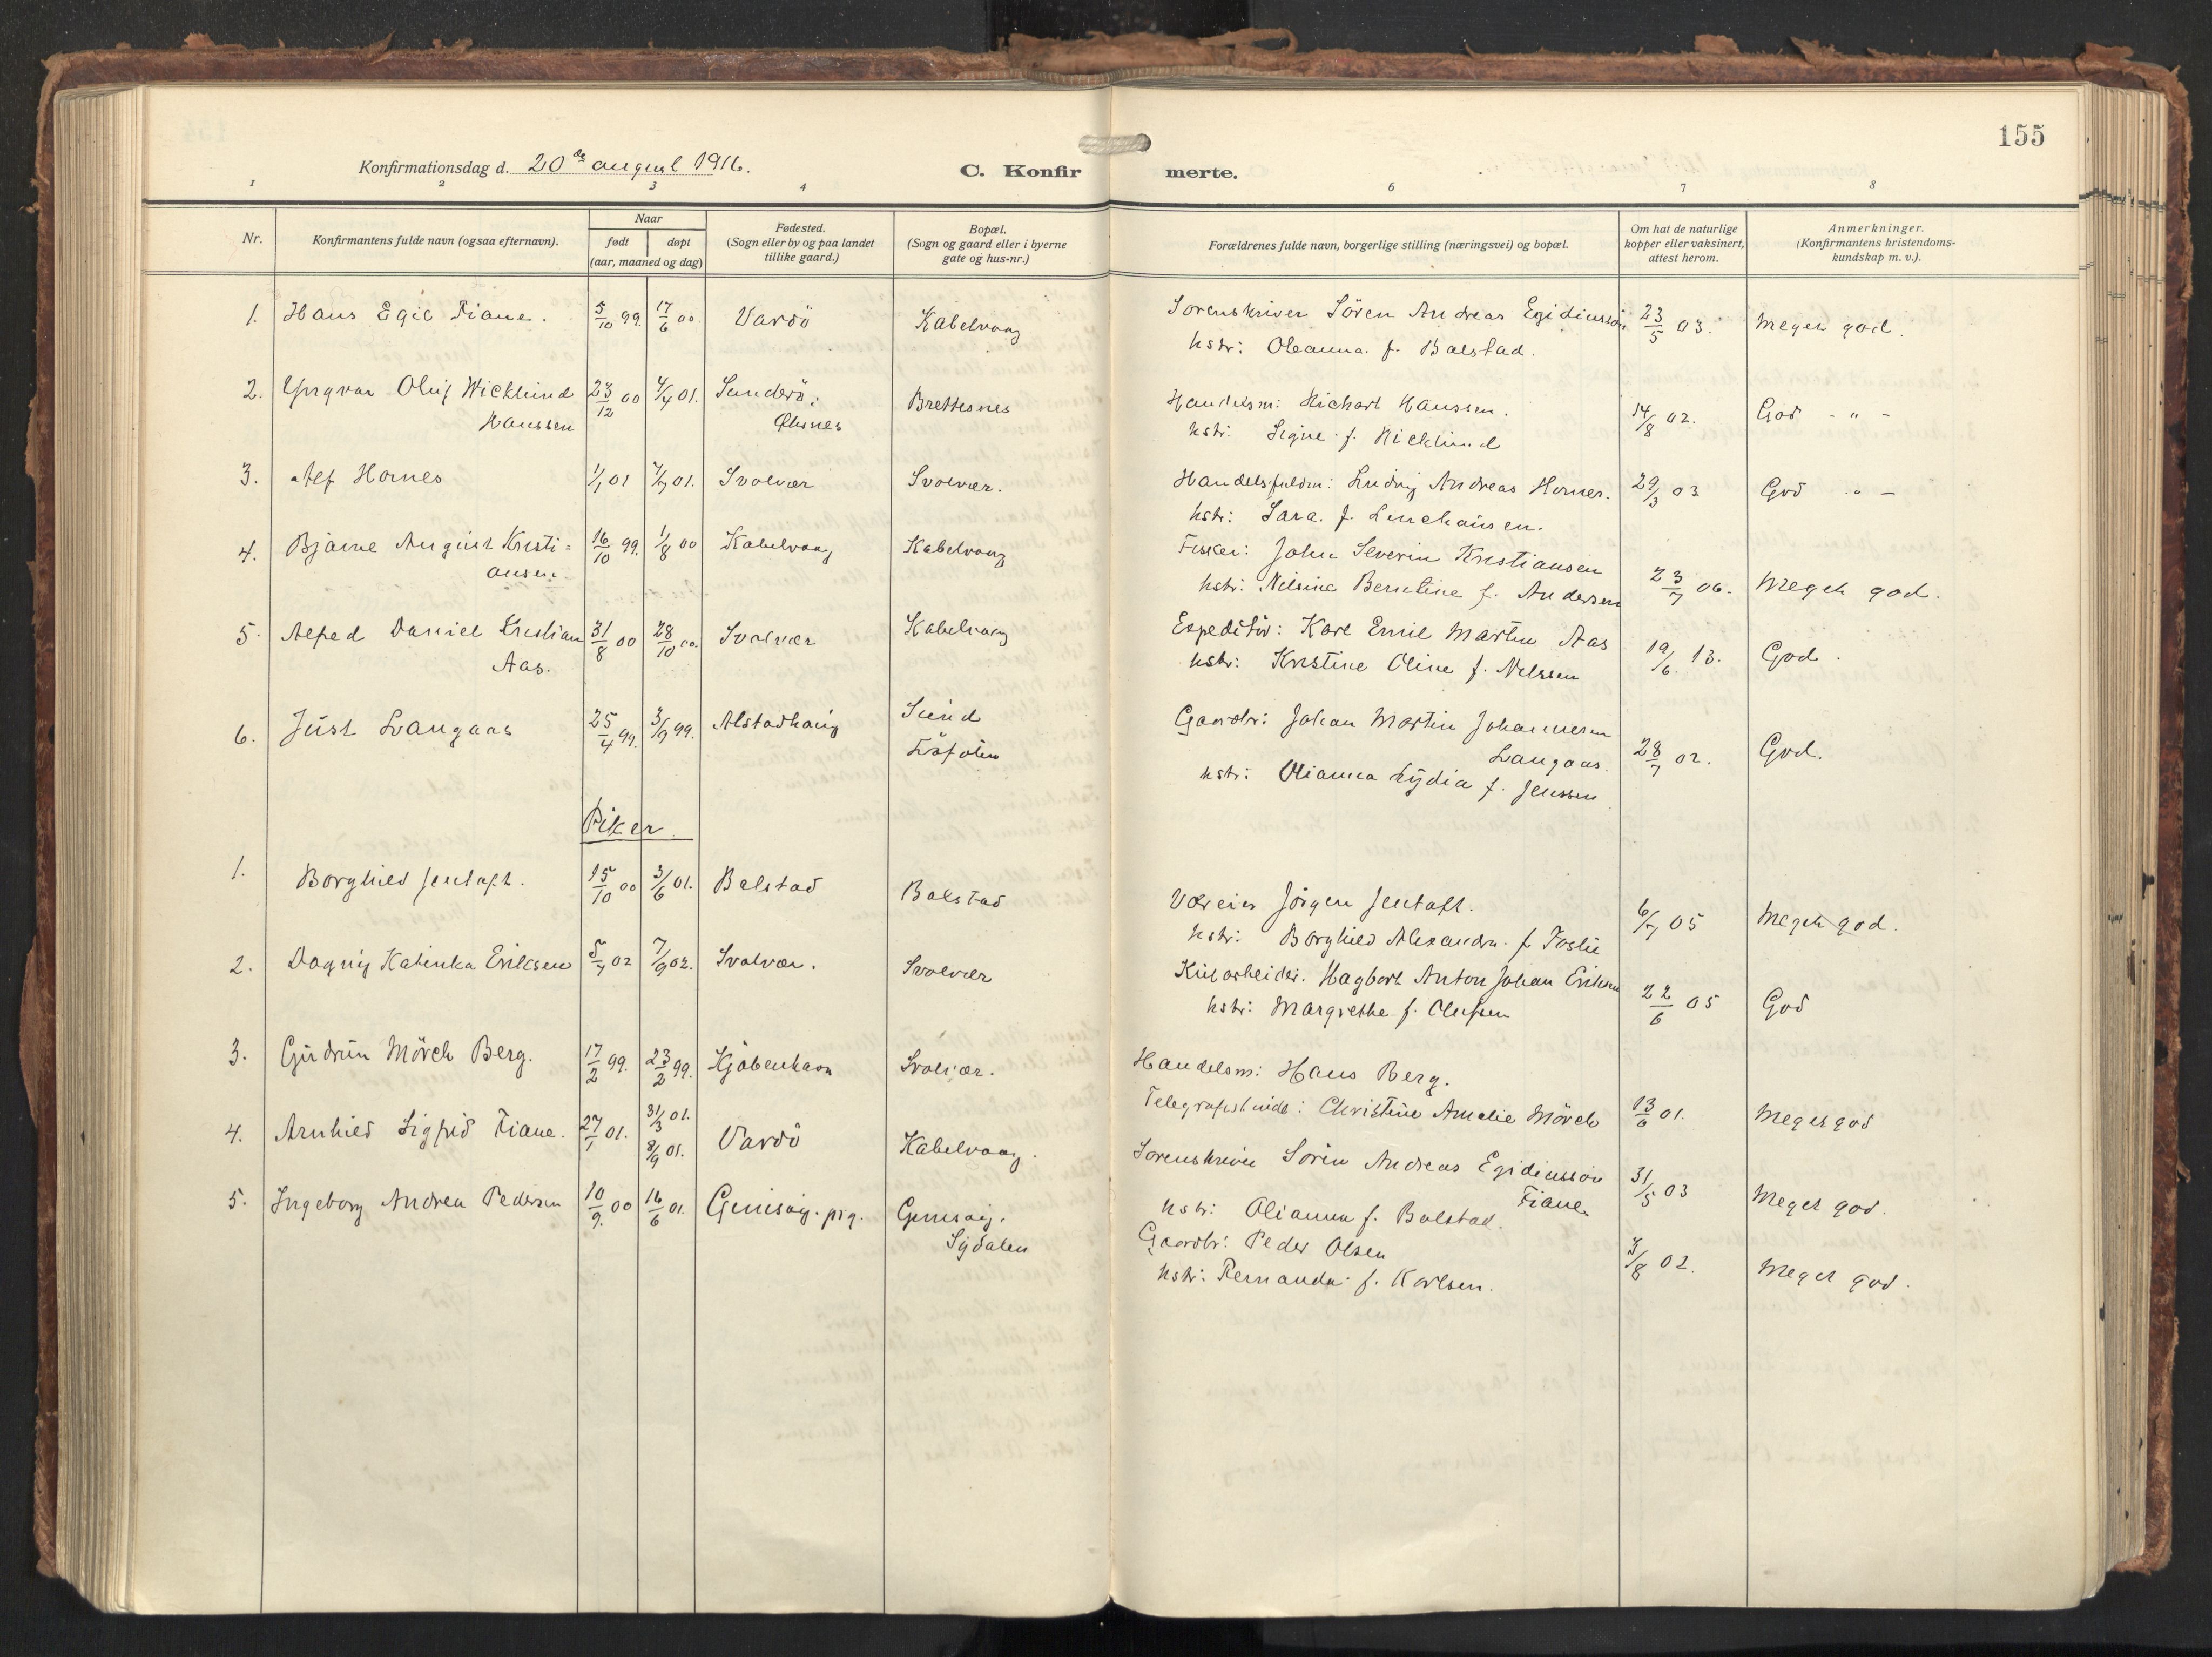 155
Konfirmationsdag d. 20de august 1916.
C. Konfirmerte.
1 2 3 4 6 7 8
Nr.
Konfirmantens fulde navn (ogsaa efternavn).
Naar
født døpt
(aar, maaned og dag)
Fødested.
(Sogn eller by og paa landet
tillike gaard.)
Bopæl.
(Sogn og gaard eller i byerne
gate og hus-nr.)
Forældrenes fulde navn, borgerlige stilling (næringsvei) og bopæl.
Om hat de naturlige
kopper eller vaksinert,
attest herom.
Anmerkninger.
(Konfirmantens kristendoms-
kundskap m. v.).
1. Hans Egil Fiane. 5/10 99. 17/6 00. Vardö Kabelvaag Sorenskriver Sören Andreas Egidiussön 23/5 03. Meget god.
hstr: Oleanna f. Balstad.
2. Yngvar Oluf Wicklund 23/12 00 4/4 01. Sunderö: Brettesnes Handelsm: Richart Hanssen. 14/8 02. God - " -
Hanssen hstr: Signe f. Wicklund
3. Alf Hornes 1/1 01 7/7 01. Svolvær Svolvær. Handelsfuldm: Ludvig Andreas Hornes. 29/3 03 God " -
hstr: Sara f.
4. Bjarne August Kristi= 16/10 99. 1/8 00 Kabelvaag Kabelvaag Fisker: John Severin Kristiansen 23/7 06. Meget god.
ansen. hstr: Nilsine Berntine f. Andersen
5. Alfed Daniel Kristian 31/8 00 28/10 00. Svolvær Kabelvaag Expeditör: Karl Emil Martin Aas 19/6 13. God.
Aas. hstr: Kristine Oline f. Nilssen
6. Just Langaas 25/4 99. 3/9 99. Alstadhaug Sund Gaardbr: Johan Martin Johannesen 28/7 02. God.
Langaas.
hstr: Olianna Lydia f. Jenssen
Piker.
1. Borghild Jentoft. 15/10 00 3/6 01. Balstad Balstad Væreier Jörgen Jentoft. 6/7 05 Meget god.
hstr: Borghild Alexandra f. Foslie
2. Dagny Katinka Eriksen 5/7 02 7/9 02. Svolvær. Svolvær Kularbeider. Hagbart Anton Johan Eriksen 22/6 05 God
hstr: Margrethe f. Olufsen
3. Gudrun Mörch Berg. 17/2 99. 23/2 99. Kjöbenhavn Svolvær. Handelsm: Hans Berg. 13/6 01. Meget god
Telegrafistinde: Christine Amalie Mörch
4. Arnhild Sigfrid Fiane. 27/1 01. 31/3 01. Vardö Kabelvaag. Sorenskriver Sörin Andreas Egidiussön 31/5 03 Meget god.
8/9 01. Fiane.
hstr: Olianna f. Balstad.
5. Ingeborg Andrea Pedersen 10/9. 00 16/6 01. Gimsöy. prg. Gimsöy. Gaardbr: Peder Olsen 3/8 02. Meget god.
Sydalen hstr: Pernanda f. Karlsen.